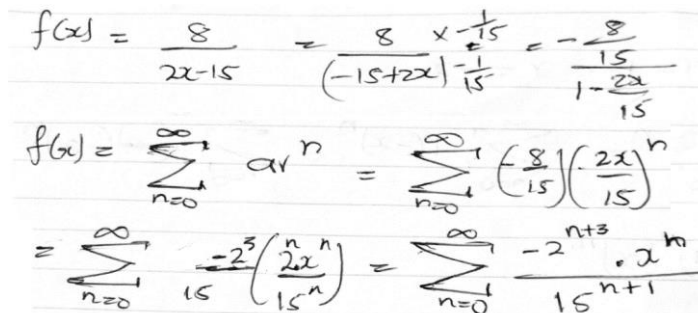 f(x) = 8/(2x-15) = (8 × -1/15)/((-15+2x) -1/15) = (-8/15)/(1 - 2x/15)
f(x) = ∑_{n=0}^{∞} ar^n = ∑_{n=0}^{∞} (-8/15)(2x/15)^n
= ∑_{n=0}^{∞} -2^3/15 (2^n x^n/15^n) = ∑_{n=0}^{∞} (-2^{n+3} · x^n)/15^{n+1}